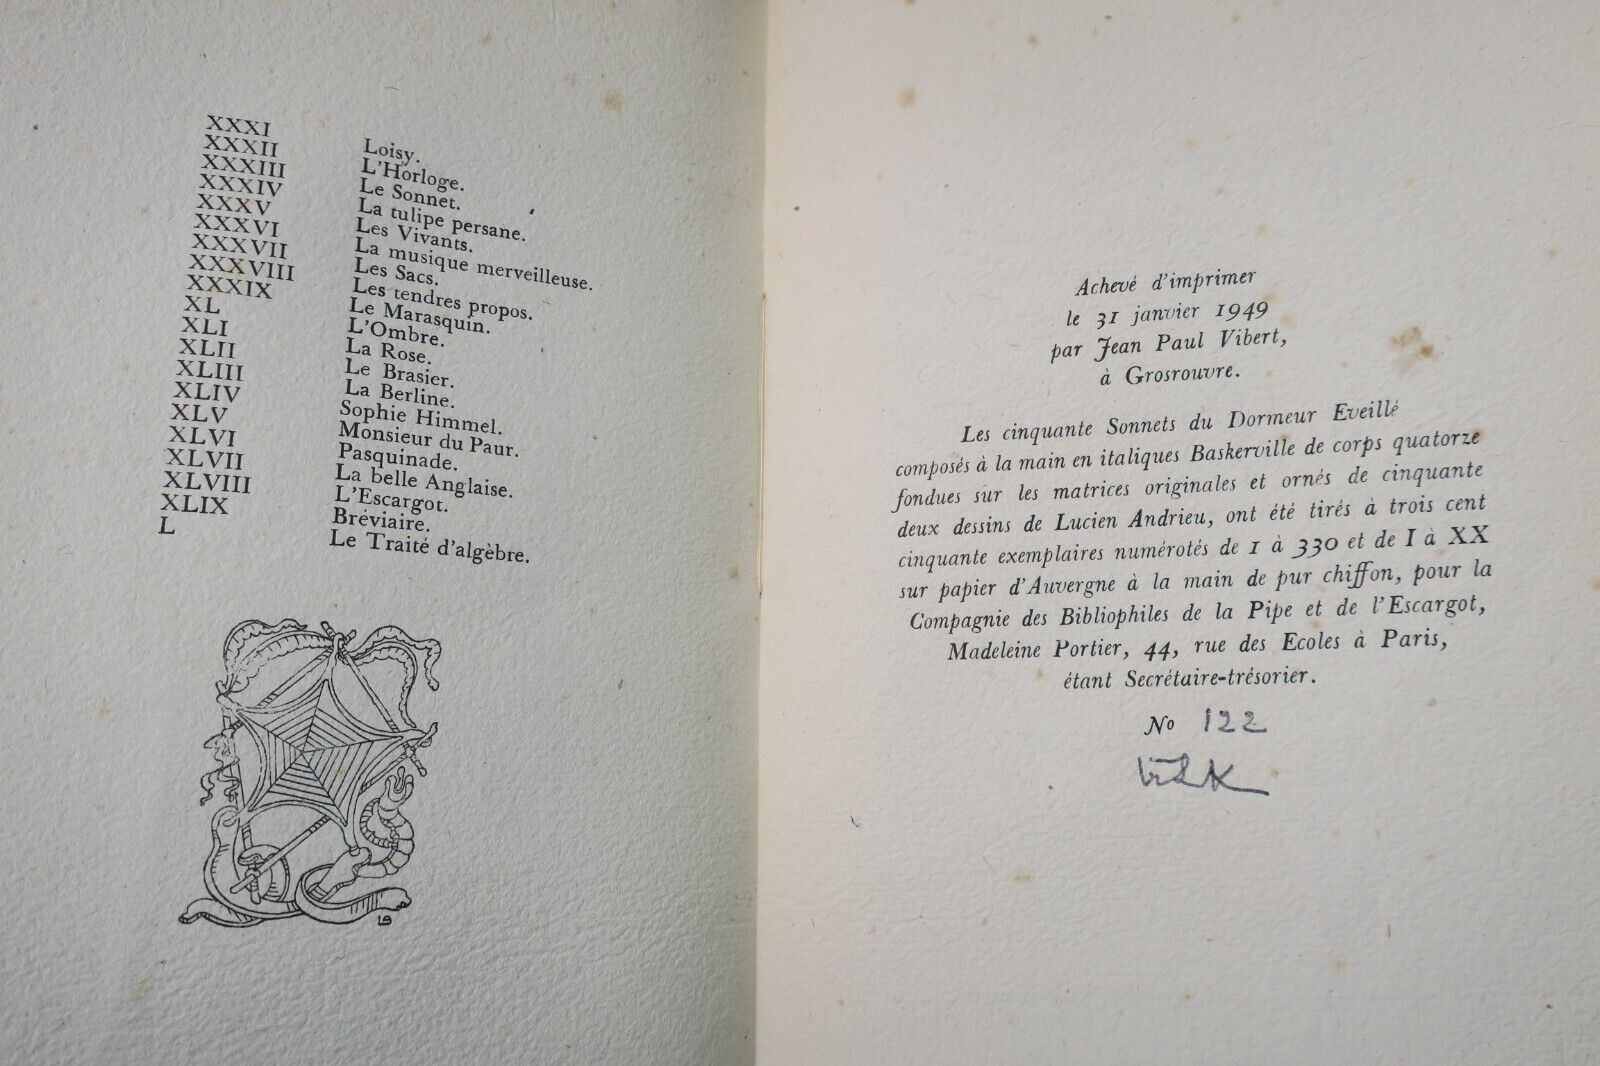 XXXI Loisy.
XXXII L'Horloge.
XXXIII Le Sonnet.
XXXIV La tulipe persane.
XXXV Les Vivants.
XXXVI La musique merveilleuse.
XXXVII Les Sacs.
XXXVIII Les tendres propos.
XXXIX Le Marasquin.
XL L'Ombre.
XLI La Rose.
XLII Le Brasier.
XLIII La Berline.
XLIV Sophie Himmel.
XLV Monsieur du Paur.
XLVI Pasquinade.
XLVII La belle Anglaise.
XLVIII L'Escargot.
XLIX Bréviaire.
L Le Traité d'algèbre.
Achevé d'imprimer
le 31 janvier 1949
par Jean Paul Vibert,
à Grosrouvre.
Les cinquante Sonnets du Dormeur Eveillé
composés à la main en italiques Baskerville de corps quatorze
fondues sur les matrices originales et ornés de cinquante
deux dessins de Lucien Andrieu, ont été tirés à trois cent
cinquante exemplaires numérotés de 1 à 330 et de I à XX
sur papier d'Auvergne à la main de pur chiffon, pour la
Compagnie des Bibliophiles de la Pipe et de l'Escargot,
Madeleine Portier, 44, rue des Ecoles à Paris,
étant Secrétaire-trésorier.
No 122